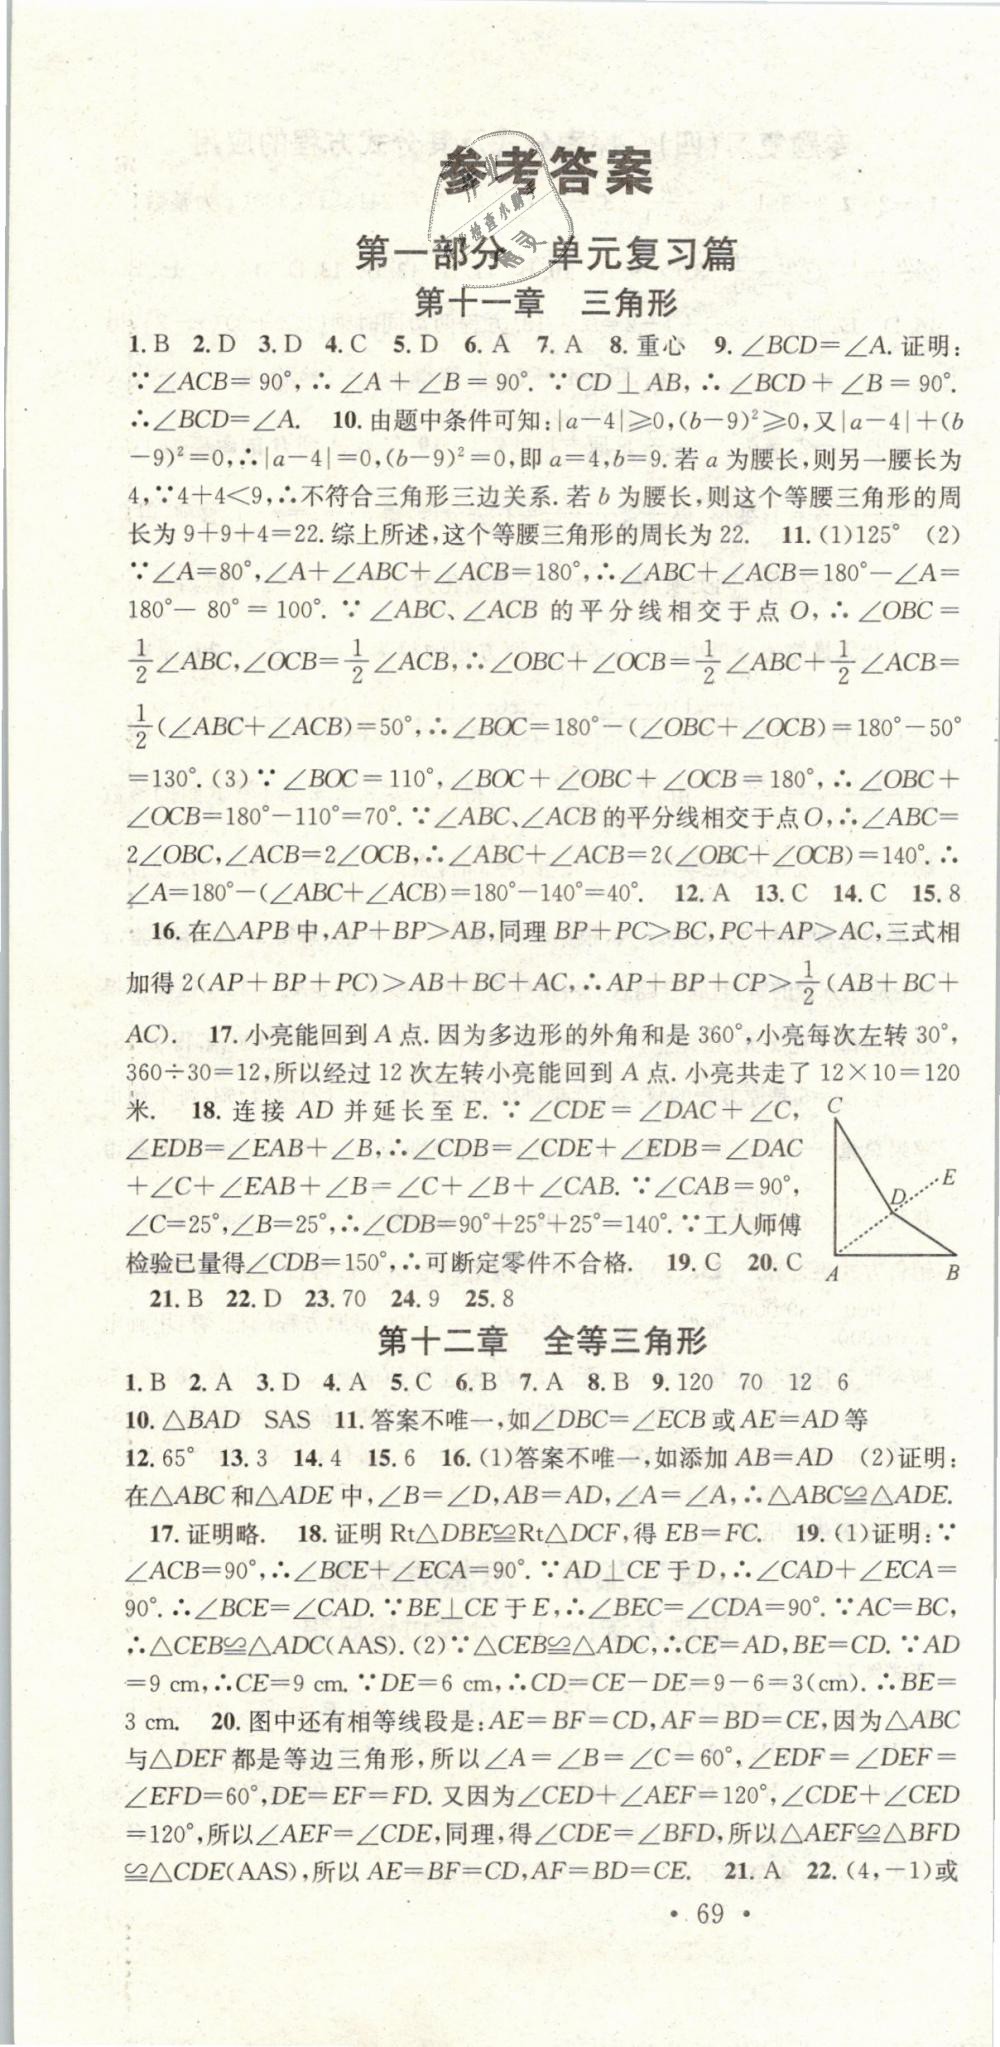 参考答案
第一部分 单元复习篇
第十一章 三角形
1. B 2. D 3. D 4. C 5. D 6. A 7. A 8. 重心 9. ∠BCD=∠A. 证明:
∵∠ACB=90°,∴∠A+∠B=90°. ∵CD⊥AB,∴∠BCD+∠B=90°.
∴∠BCD=∠A. 10. 由题中条件可知:|a-4|≥0,(b-9)²≥0,又|a-4|+(b
-9)²=0,∴|a-4|=0,(b-9)²=0,即a=4,b=9. 若a为腰长,则另一腰长为
4,∵4+4<9,∴不符合三角形三边关系. 若b为腰长,则这个等腰三角形的周
长为9+9+4=22. 综上所述,这个等腰三角形的周长为22. 11. (1)125° (2)
∵∠A=80°,∠A+∠ABC+∠ACB=180°,∴∠ABC+∠ACB=180°-∠A=
180°-80°=100°. ∵∠ABC、∠ACB的平分线相交于点O,∴∠OBC=
1/2∠ABC,∠OCB=1/2∠ACB,∴∠OBC+∠OCB=1/2∠ABC+1/2∠ACB=
1/2(∠ABC+∠ACB)=50°,∴∠BOC=180°-(∠OBC+∠OCB)=180°-50°
=130°. (3)∵∠BOC=110°,∠BOC+∠OBC+∠OCB=180°,∴∠OBC+
∠OCB=180°-110°=70°. ∵∠ABC、∠ACB的平分线相交于点O,∴∠ABC=
2∠OBC,∠ACB=2∠OCB,∴∠ABC+∠ACB=2(∠OBC+∠OCB)=140°. ∴
∠A=180°-(∠ABC+∠ACB)=180°-140°=40°. 12. A 13. C 14. C 15. 8
16. 在△APB中,AP+BP>AB,同理BP+PC>BC,PC+AP>AC,三式相
加得2(AP+BP+PC)>AB+BC+AC,∴AP+BP+CP>1/2(AB+BC+
AC). 17. 小亮能回到A点. 因为多边形的外角和是360°,小亮每次左转30°,
360÷30=12,所以经过12次左转小亮能回到A点. 小亮共走了12×10=120
米. 18. 连接AD并延长至E. ∵∠CDE=∠DAC+∠C,
∠EDB=∠EAB+∠B,∴∠CDB=∠CDE+∠EDB=∠DAC
+∠C+∠EAB+∠B=∠C+∠B+∠CAB. ∵∠CAB=90°,
∠C=25°,∠B=25°,∴∠CDB=90°+25°+25°=140°. ∵工人师傅
检验已量得∠CDB=150°,∴可断定零件不合格. 19. C 20. C
C
D
E
A
B
21. B 22. D 23. 70 24. 9 25. 8
第十二章 全等三角形
1. B 2. A 3. D 4. A 5. C 6. B 7. A 8. B 9. 120 70 12 6
10. △BAD SAS 11. 答案不唯一,如∠DBC=∠ECB或AE=AD等
12. 65° 13. 3 14. 4 15. 6 16. (1)答案不唯一,如添加AB=AD (2)证明:
在△ABC和△ADE中,∠B=∠D,AB=AD,∠A=∠A,∴△ABC≌△ADE.
17. 证明略. 18. 证明Rt△DBE≌Rt△DCF,得EB=FC. 19. (1)证明:∵
∠ACB=90°,∴∠BCE+∠ECA=90°. ∵AD⊥CE于D,∴∠CAD+∠ECA=
90°. ∴∠BCE=∠CAD. ∵BE⊥CE于E,∴∠BEC=∠CDA=90°. ∵AC=BC,
∴△CEB≌△ADC(AAS). (2)∵△CEB≌△ADC,∴CE=AD,BE=CD. ∵AD
=9 cm,∴CE=9 cm. ∵DE=6 cm,∴CD=CE-DE=9-6=3(cm). ∴BE=
3 cm. 20. 图中还有相等线段是:AE=BF=CD,AF=BD=CE,因为△ABC
与△DEF都是等边三角形,所以∠A=∠B=∠C=60°,∠EDF=∠DEF=
∠EFD=60°,DE=EF=FD. 又因为∠CED+∠AEF=120°,∠CDE+∠CED
=120°,所以∠AEF=∠CDE,同理,得∠CDE=∠BFD,所以△AEF≌△BFD
≌△CDE(AAS),所以AE=BF=CD,AF=BD=CE. 21. A 22. (4,-1)或
· 69 ·